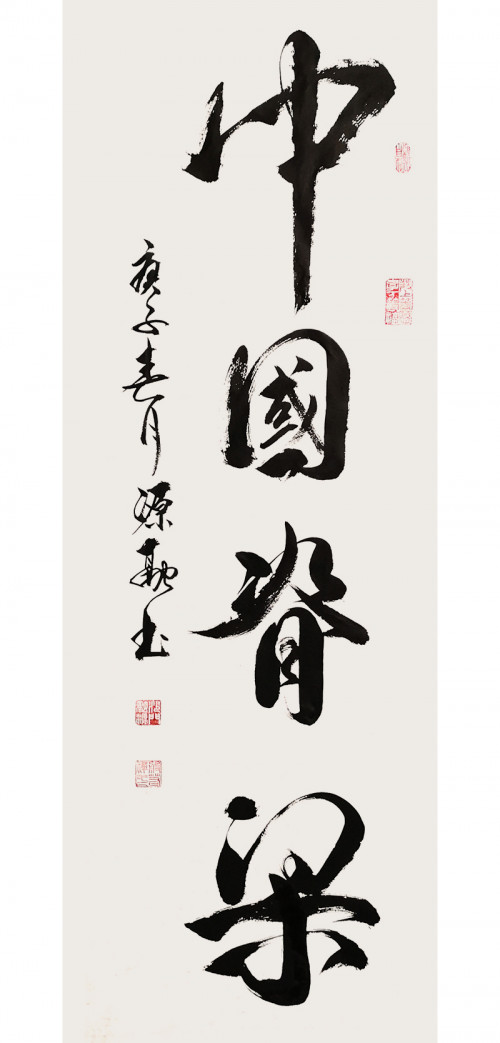 中國脊梁
庚子春月源勒书